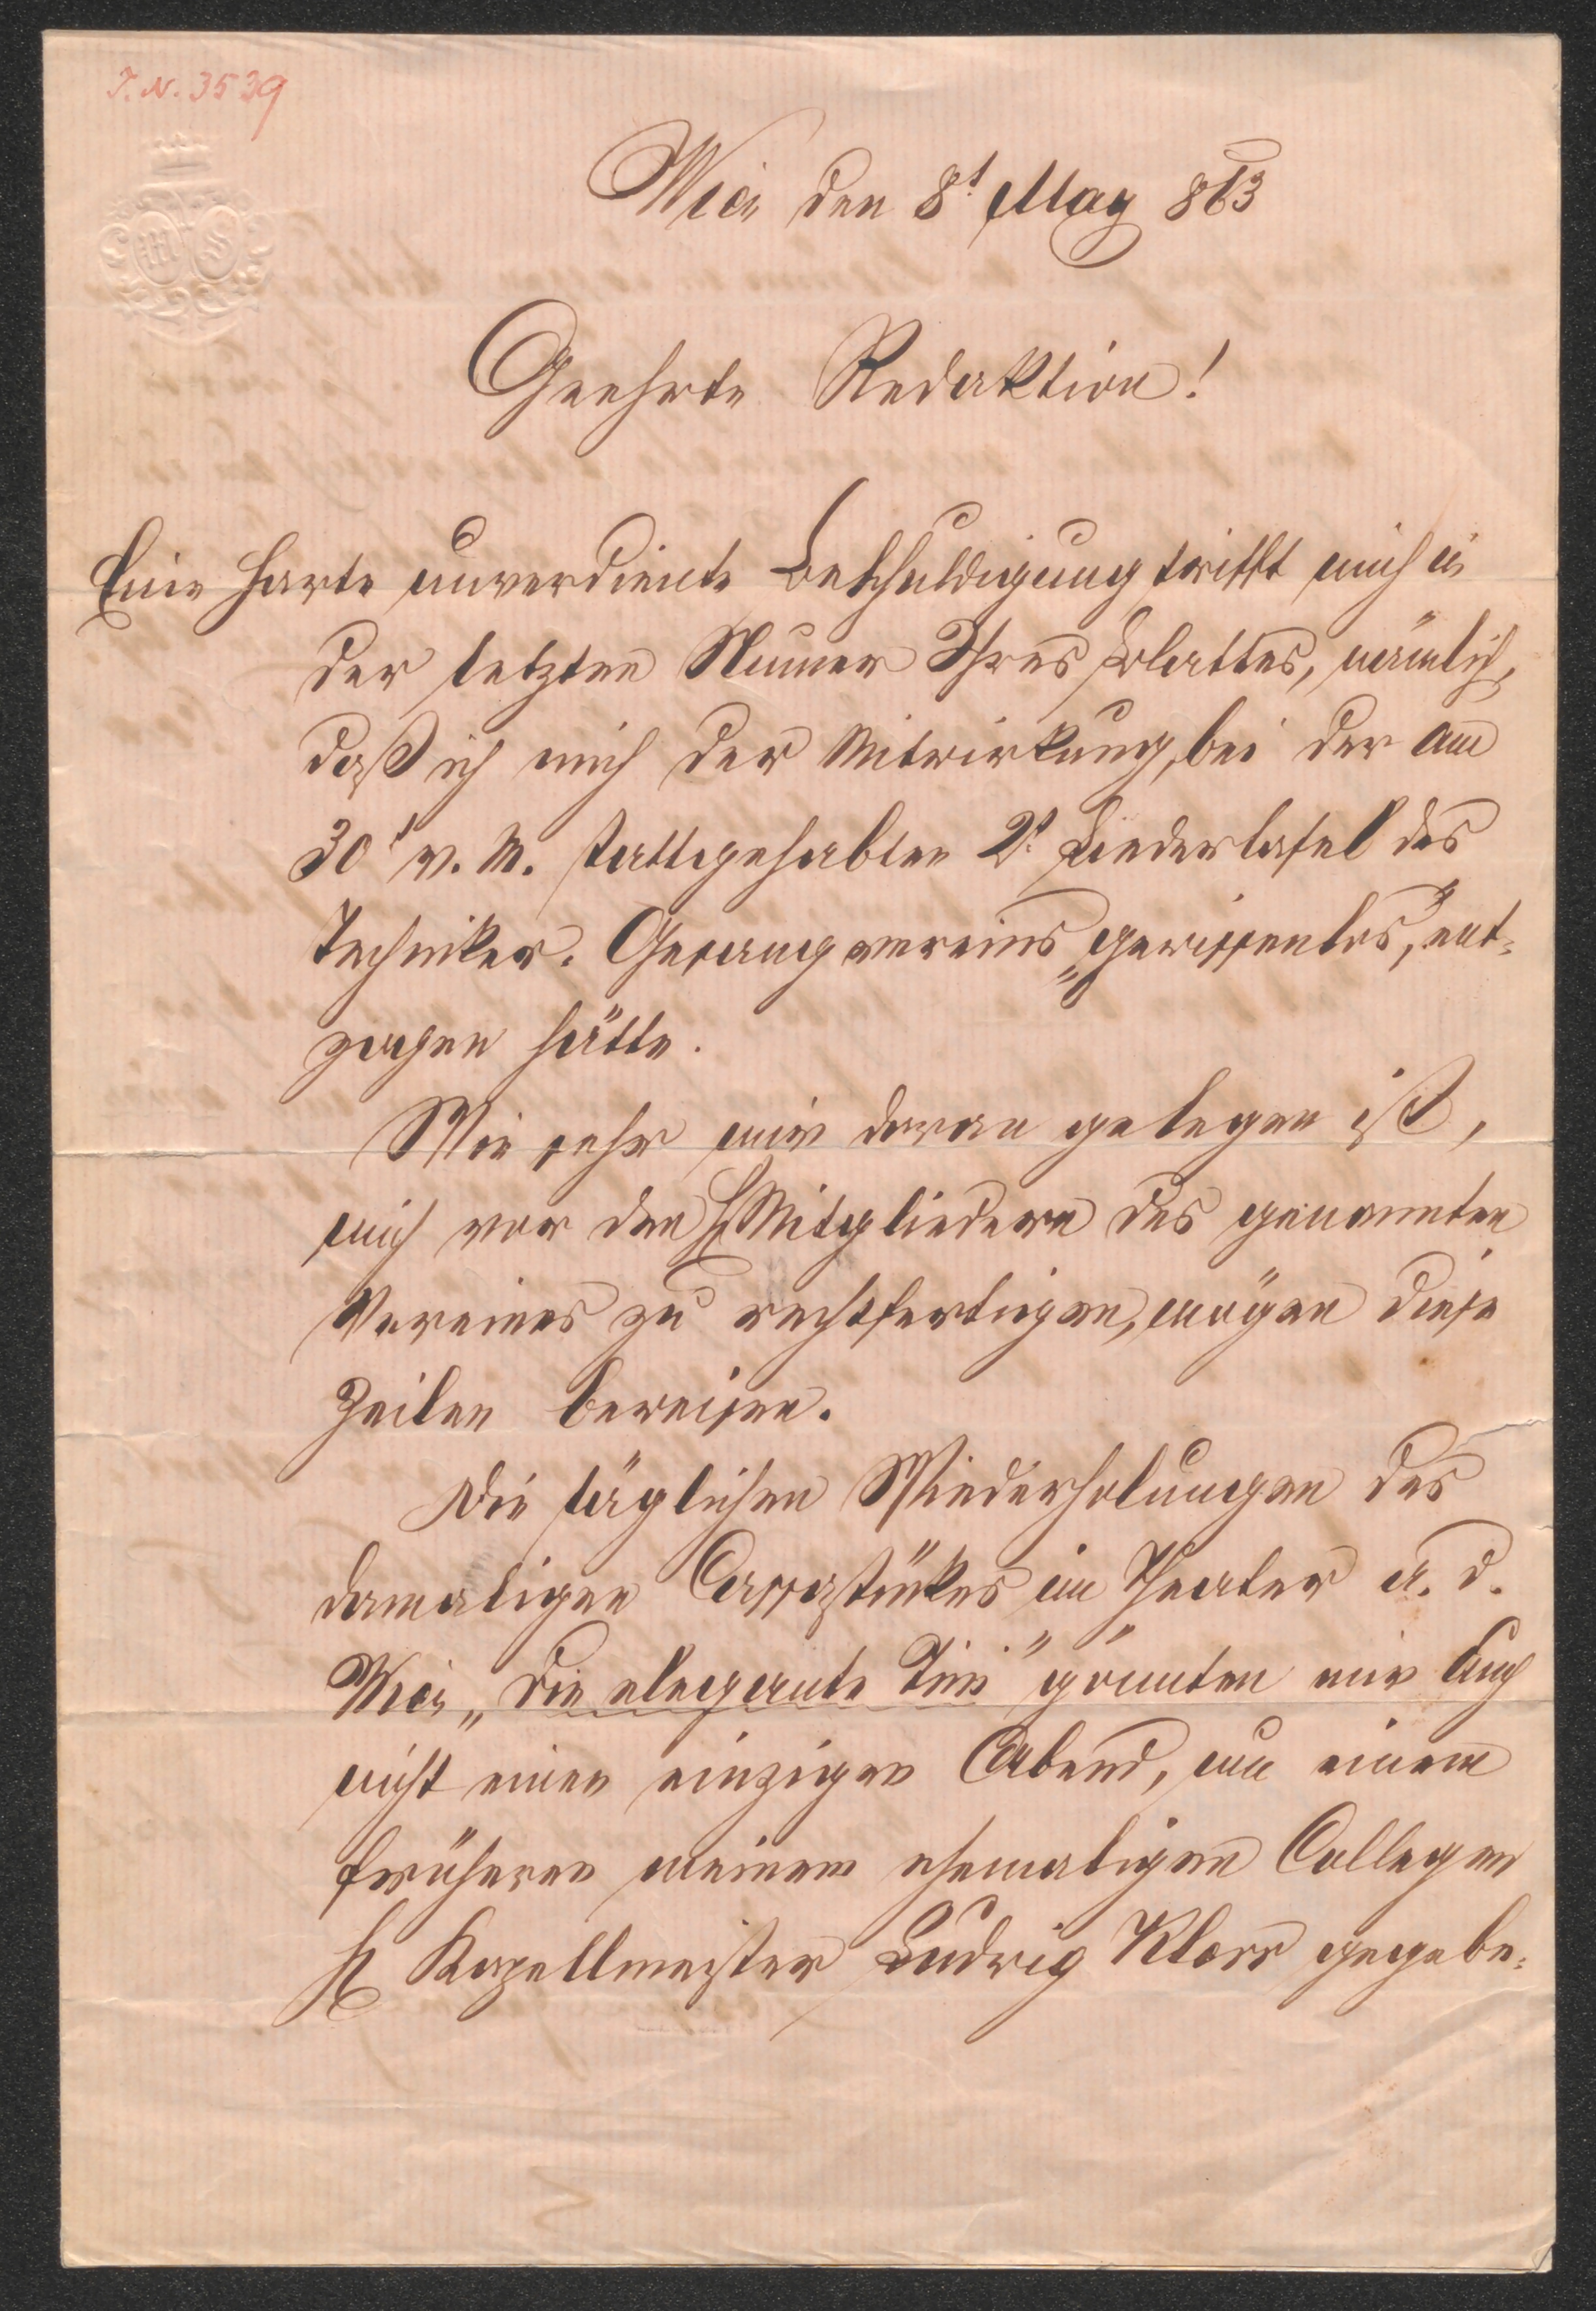 I. N. 3539
M S
Wien den 8t May 863
Geehrte Redaktion!
Eine harte unverdiente Beschuldigung trifft mich in
der letzten Numer Ihres Blattes, nämlich,
daß ich mich der Mitwirkung, bei der am
30t v. M. stattgehabten 2t Liedertafel des
Techniker-Gesangvereins „gewissenlos" ent-
zogen hätte.
Wie sehr mir daran gelegen ist,
mich vor den H Mitgliedern des genannten
Vereines zu rechtfertigen, mögen diese
Zeilen beweisen.
Die täglichen Wiederholungen des
damaligen Cassastückes im Theater a. d.
Wien „Die elegante Tini" gönnten mir auch
nicht einen einzigen Abend, um einem
früheren meinem ehemaligen Collegen
H Kapellmeister Ludwig Klerr gegebe-